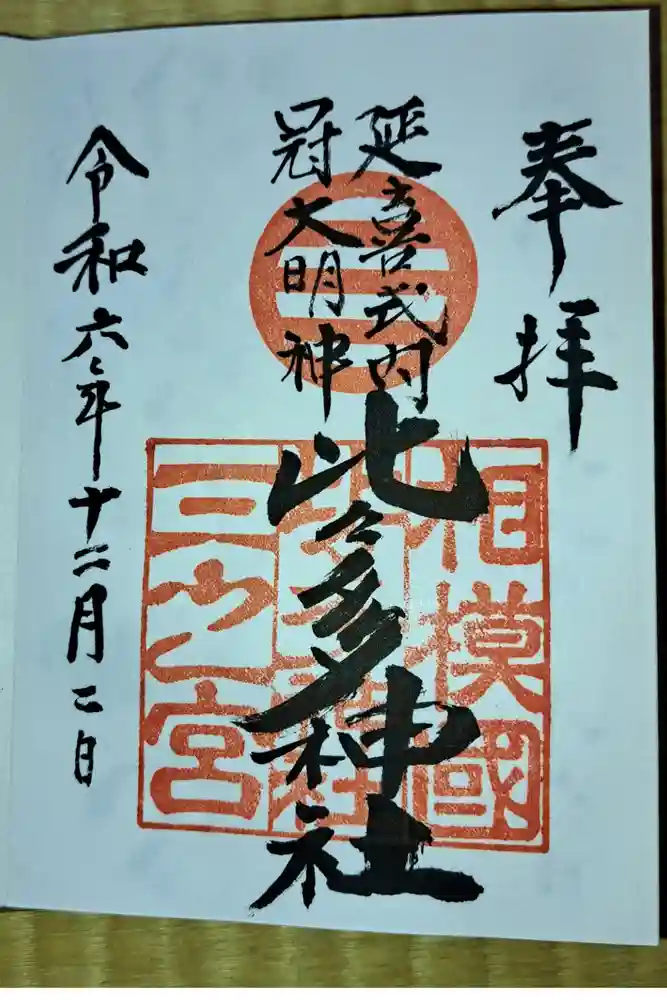 奉拝
延喜式内
冠大明神
比々多神社
令和六年十二月二日
三
相模國
三之宮